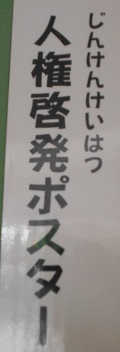 じんけんけいはつ
人権啓発ポスター